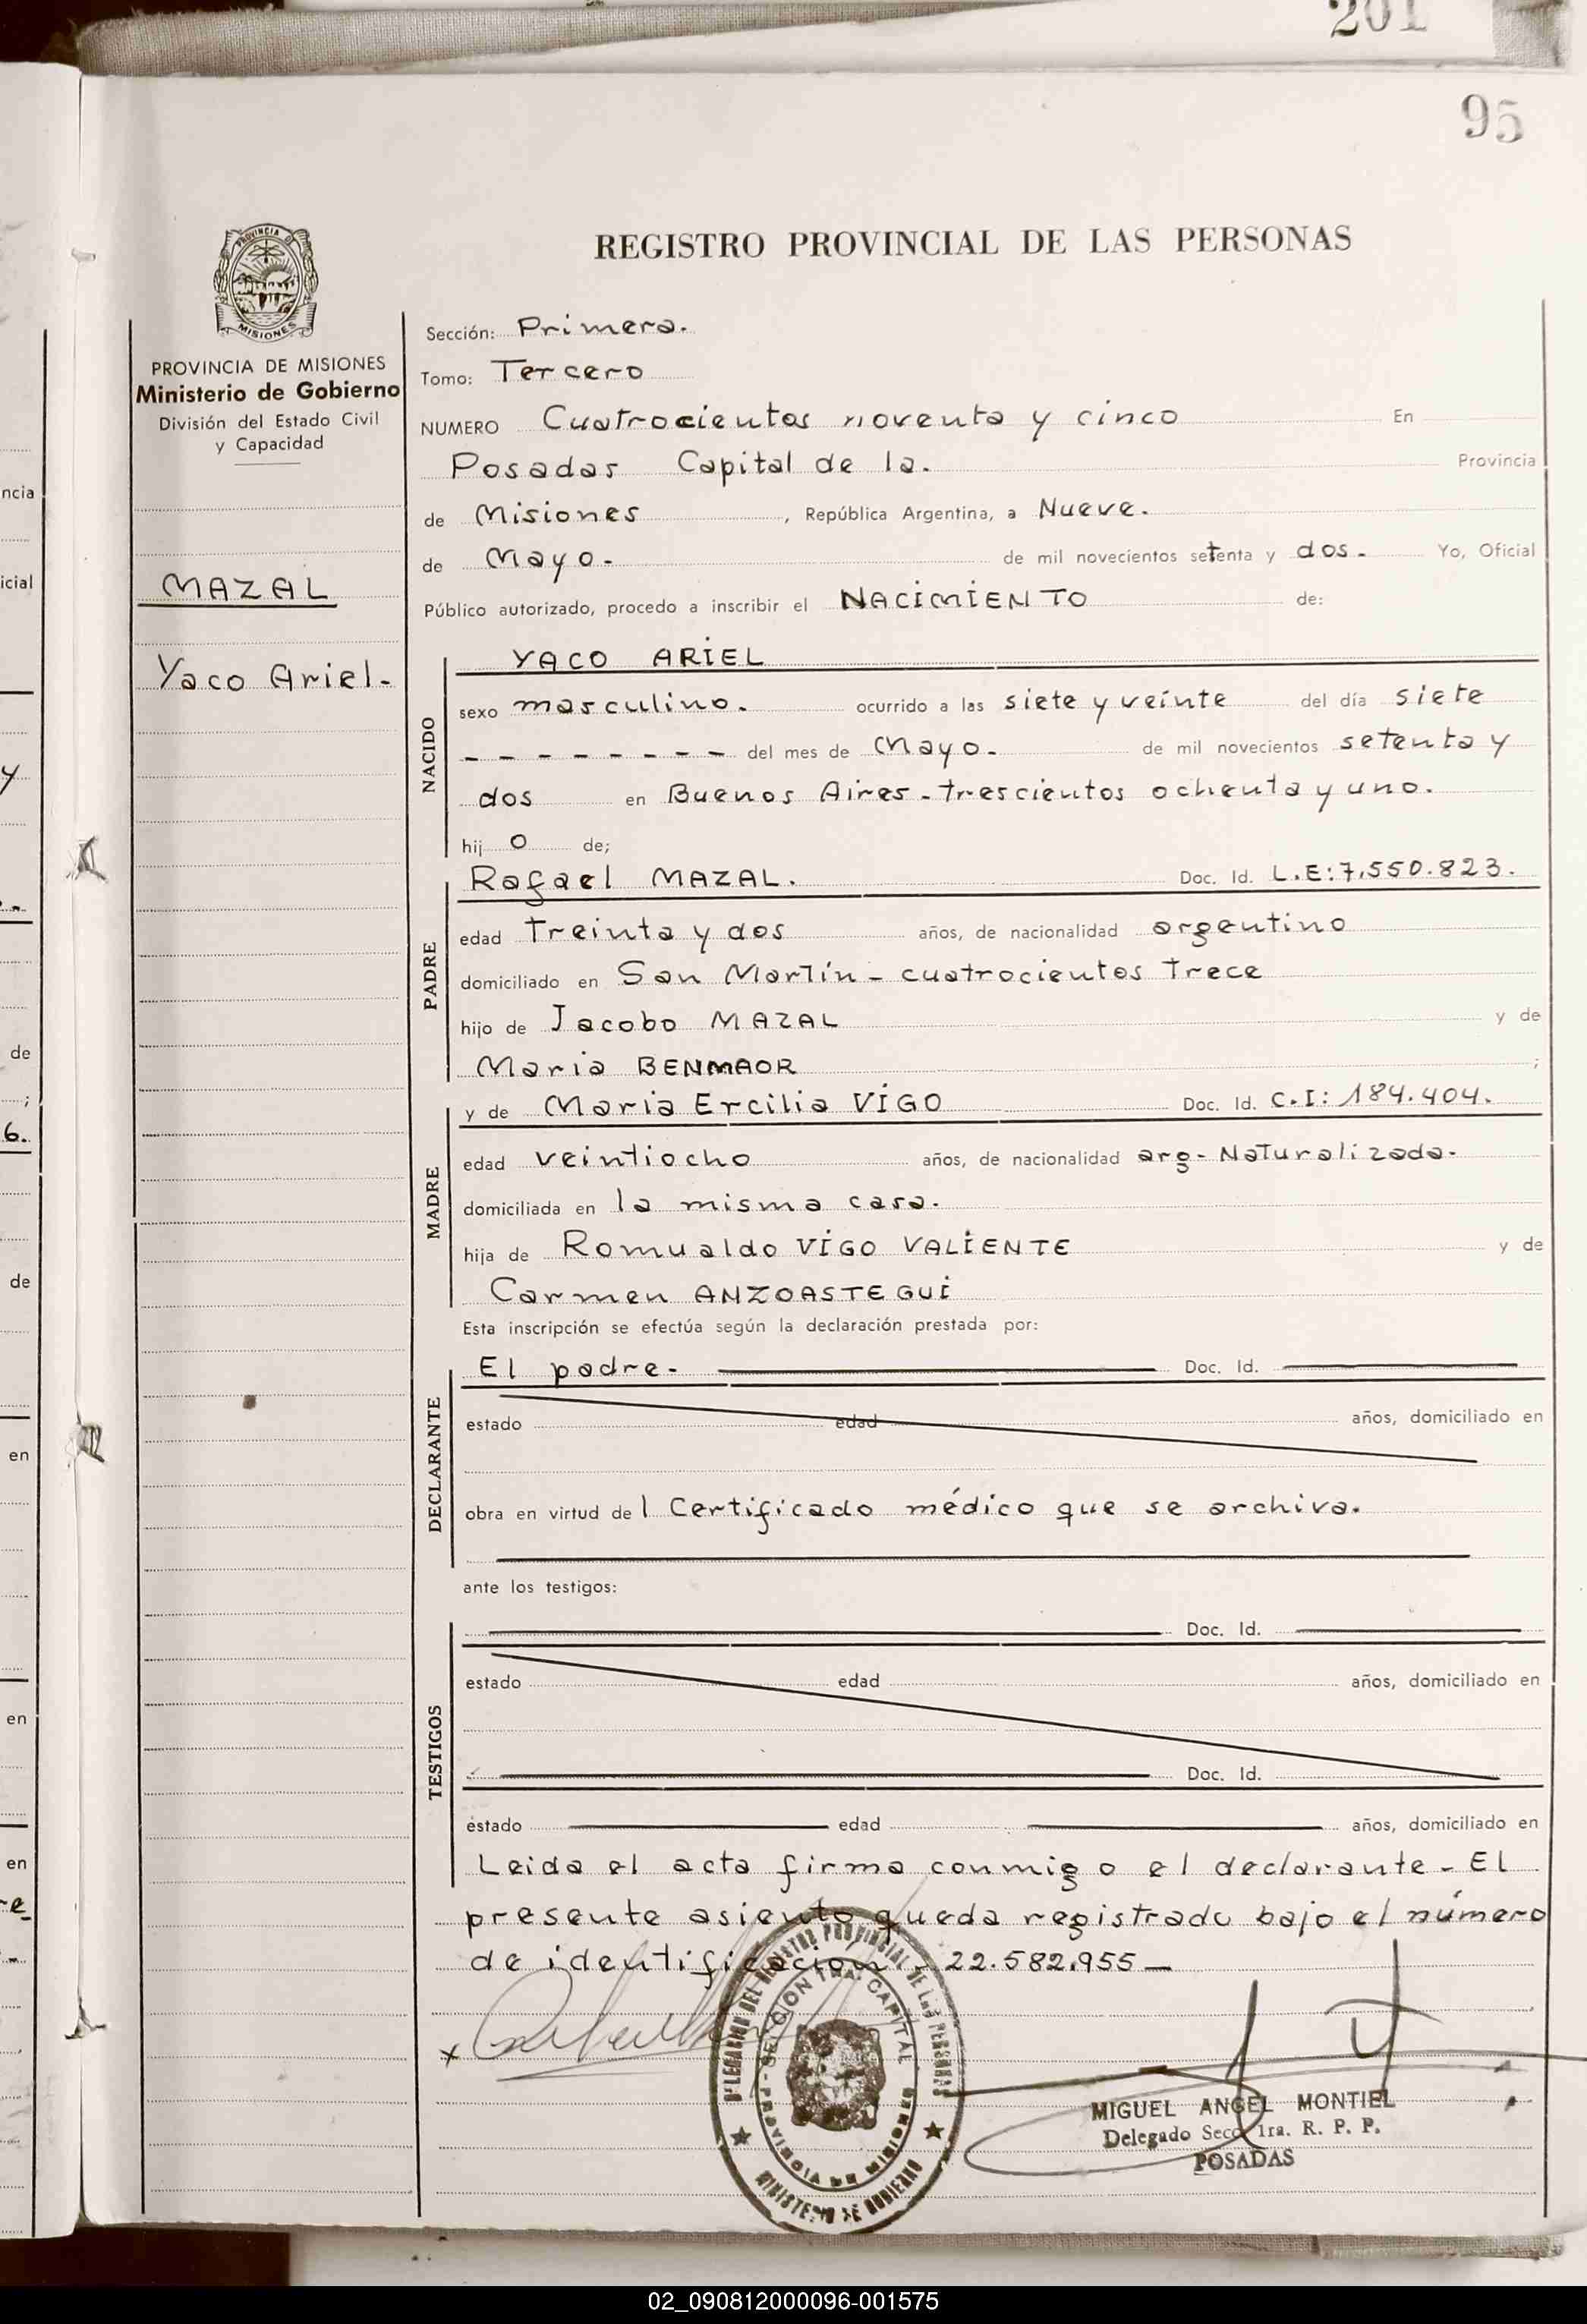 201
95
REGISTRO PROVINCIAL DE LAS PERSONAS
PROVINCIA DE
MISIONES
PROVINCIA DE MISIONES
Ministerio de Gobierno
División del Estado Civil
y Capacidad
MAZAL
Yaco Ariel-
Sección: Primera.
Tomo: Tercero
NUMERO Cuatrocientos noventa y cinco En
Posadas Capital de la. Provincia
de Misiones, República Argentina, a Nueve.
de Mayo. de mil novecientos setenta y dos. Yo, Oficial
Público autorizado, procedo a inscribir el NACIMIENTO de:
NACIDO
YACO ARIEL
sexo masculino. ocurrido a las siete y veinte del día siete
- - - - - - - - del mes de Mayo. de mil novecientos setenta y
dos en Buenos Aires - trescientos ochenta y uno.
hijo de;
PADRE
Rafael MAZAL. Doc. Id. L.E: 7.550.823.
edad Treinta y dos años, de nacionalidad argentino
domiciliado en San Martín - cuatrocientos Trece
hijo de Jacobo MAZAL y de
Maria BENMAOR ;
MADRE
y de Maria Ercilia VIGO Doc. Id. C.I: 184.404.
edad veintiocho años, de nacionalidad arg- Naturalizada.
domiciliada en la misma casa.
hija de Romualdo VIGO VALIENTE y de
Carmen ANZOASTEGUI
Esta inscripción se efectúa según la declaración prestada por:
DECLARANTE
El padre- Doc. Id.
estado edad años, domiciliado en
obra en virtud del Certificado médico que se archiva.
ante los testigos:
TESTIGOS
Doc. Id.
estado edad años, domiciliado en
Doc. Id.
estado edad años, domiciliado en
Leida el acta firma conmigo el declarante - El
presente asiento queda registrado bajo el número
de identificacion 22.582.955 -
x
DELEGACION DEL REGISTRO PROVINCIAL DE LAS PERSONAS
SECCION 1RA. CAPITAL
PROVINCIA DE MISIONES
MINISTERIO DE GOBIERNO
MIGUEL ANGEL MONTIEL
Delegado Secc. 1ra. R. P. P.
POSADAS
ncia
icial
y
de
;
6.
de
en
en
en
re
02_090812000096-001575